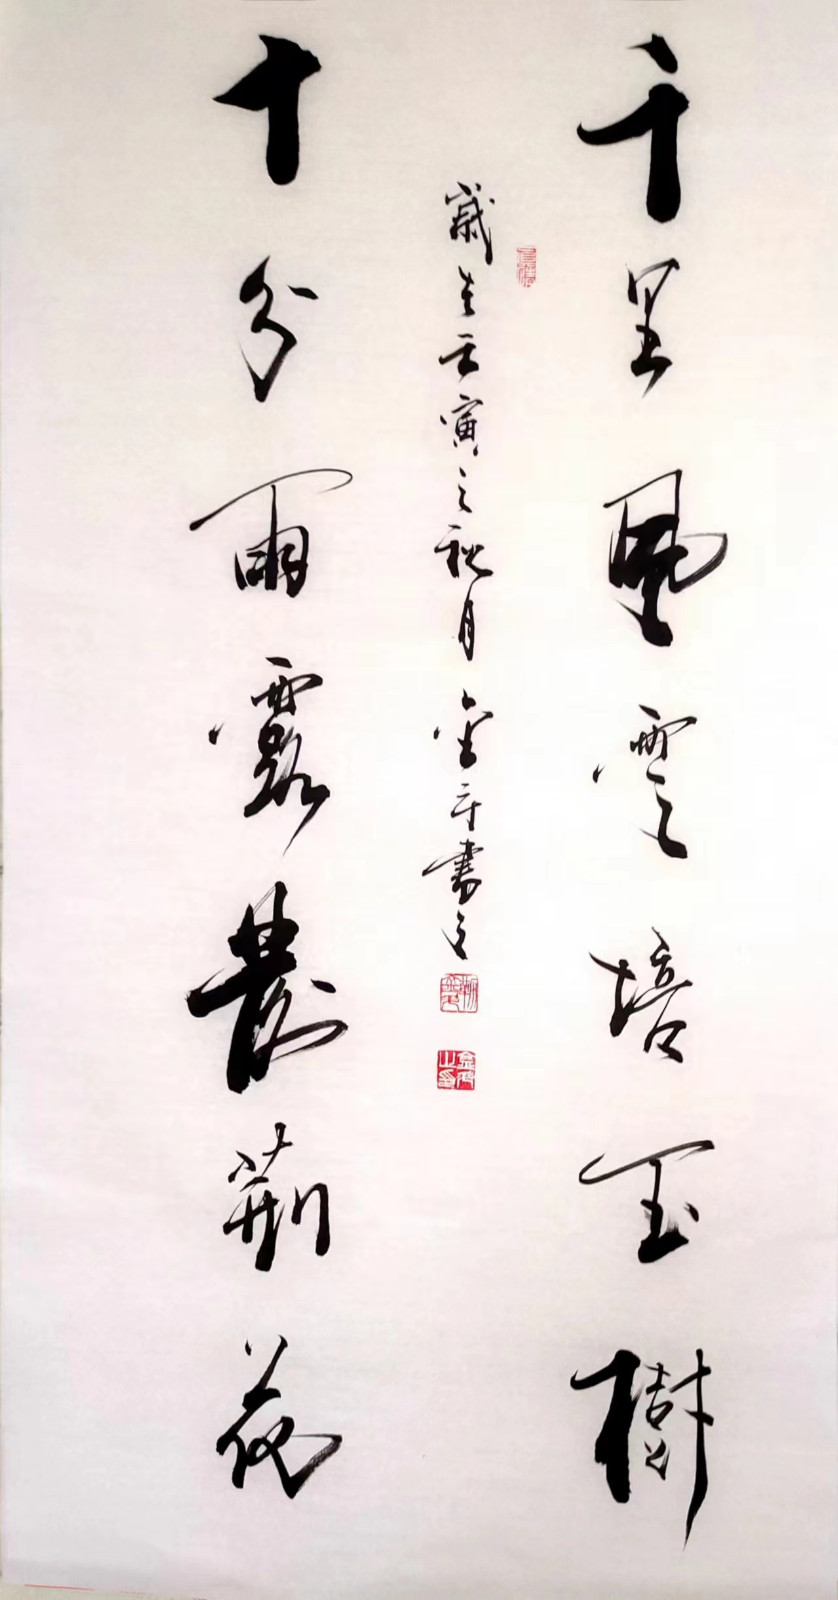 千里風雲培玉樹
十分雨露農荊花
歲在壬寅之秋月金書之